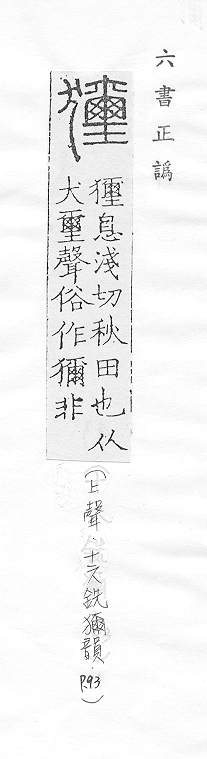 六書正譌
玁
玁息淺切秋田也从
犬璽聲俗作獮非
(上聲.十六銑獮韻.P.93)